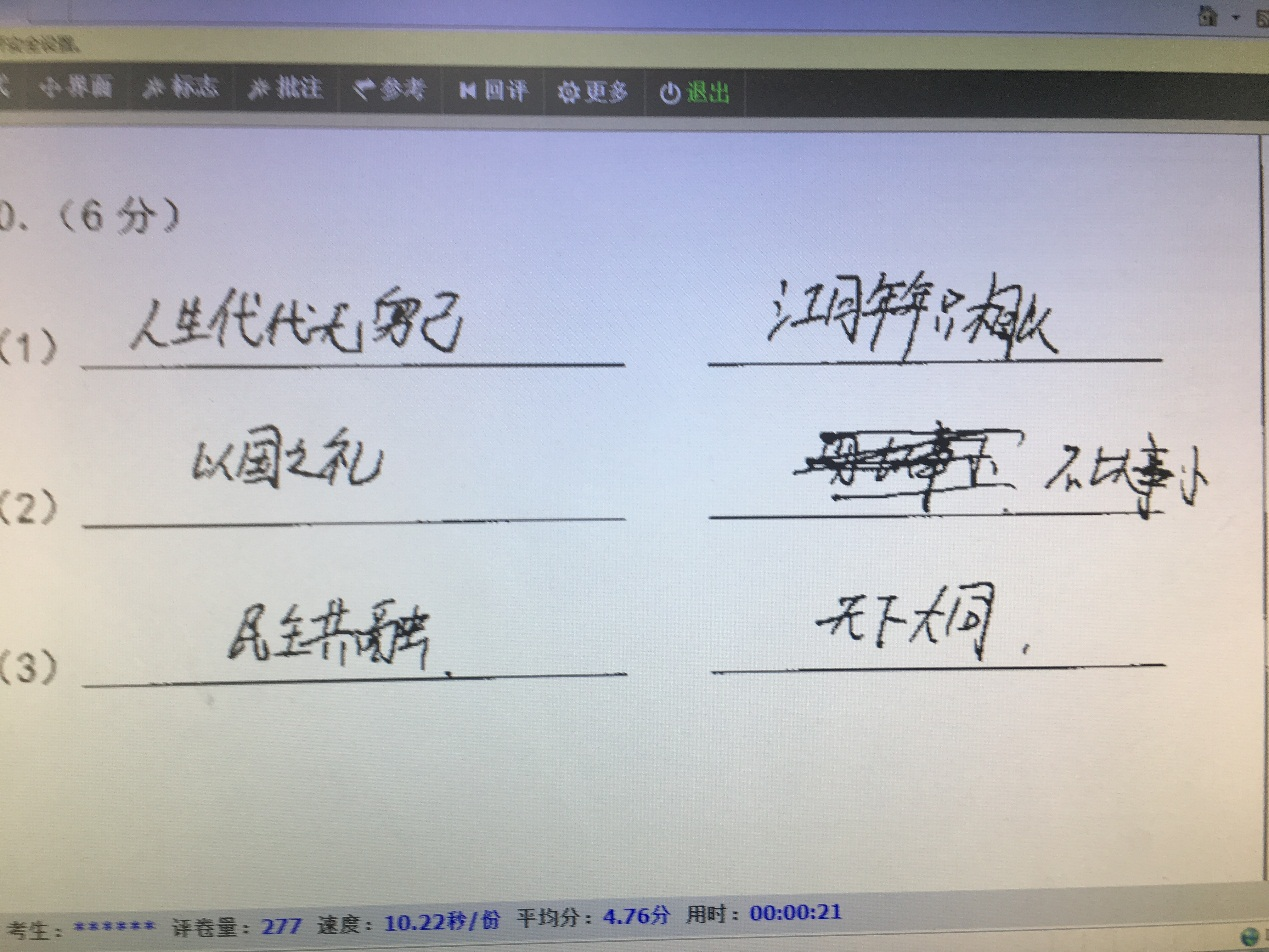 安全设置。
界面 标志 批注 参考 回评 更多 退出
0.（6 分）
（1） 人生代代无穷己 江月年年只相似
（2） 以国之礼 不以事小
（3） 民主共融. 天下大同.
考生：****** 评卷量：277 速度：10.22秒/份 平均分：4.76分 用时：00:00:21